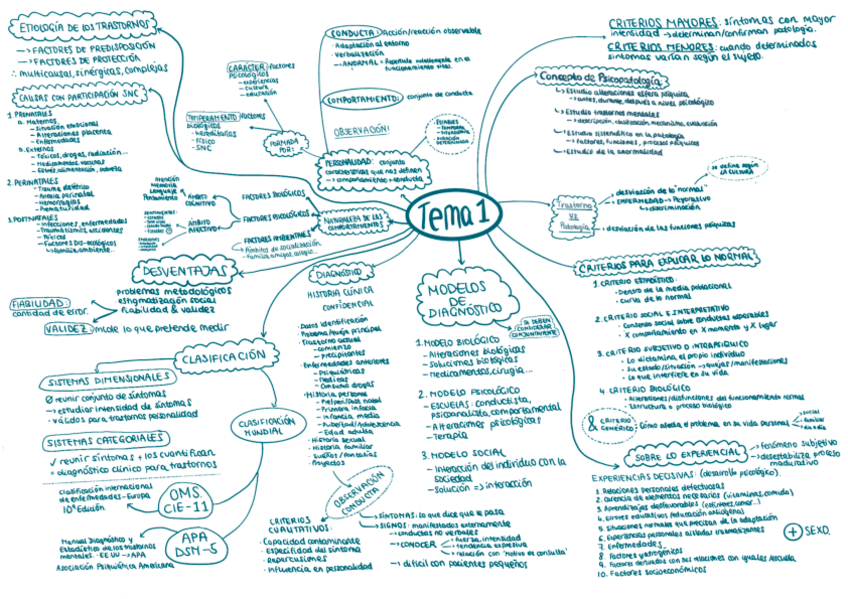 ETIOLOGÍA DE LOS TRASTORNOS
→ FACTORES DE PREDISPOSICIÓN
→ FACTORES DE PROTECCIÓN
∴ multicausas, sinérgicas, complejas
CAUSAS CON PARTICIPACIÓN SNC
1. PRENATALES
a. Maternos
- Situación emocional
- Alteraciones placenta
- Enfermedades
b. Externos
- Tóxicos, drogas, radiación...
- Medicamentos, vacunas
- Estrés, alimentación, sobreto
2. PERINATALES
- Trauma obstétrico
- Anoxia perinatal
- Hemorragias
- Prematuridad
3. POSTNATALES
- Infecciones, enfermedades
- Traumatismos, accidentes
- Tóxicos
- Factores bio-ecológicos
↳ Familia, ambiente
CARÁCTER: factores
psicológicos
- experiencias
- cultura
- educación
TEMPERAMENTO: factores
biológicos
- Hereditarios
- Físico
- SNC
FORMADA
POR:
CONDUCTA: Acción/reacción observable
- Adaptación al entorno
- Verbalización
COMPORTAMIENTO: conjunto de conducta
OBSERVACIÓN:
PERSONALIDAD: conjunto
características que nos definen
→ comportamiento + conducta
Tema 1
NATURALEZA DE LOS
COMPORTAMIENTOS
FACTORES BIOLÓGICOS
FACTORES PSICOLÓGICOS
FACTORES AMBIENTALES
→ Ámbitos de socialización
- Familia, amigos, colegio...
ÁMBITO
COGNITIVO
Atención
Memoria
Lenguaje
Pensamiento
ÁMBITO
AFECTIVO
CRITERIOS MAYORES: síntomas con mayor
intensidad → determinan/confirman patología.
CRITERIOS MENORES: cuando determinados
síntomas varían según el sujeto.
Concepto de Psicopatología
→ Estudio alteraciones esfera psíquica
→ antes, durante, después a nivel psicológico
→ Estudio trastornos mentales
→ descripción, clasificación, mecanismo, evaluación
→ Estudio sistemático en la patología
→ factores, funciones, procesos psíquicos
→ Estudio de la anormalidad
Trastorno
vs
Patología
desviación de lo "normal"
ENFERMEDAD → Peyorativo
↳ discriminación
se define según
LA CULTURA
desviación de las funciones psíquicas
CRITERIOS PARA EXPLICAR LO NORMAL
1. CRITERIO ESTADÍSTICO
- Dentro de la media poblacional
- Curva de lo normal
2. CRITERIO SOCIAL E INTERPRETATIVO
- Consenso social sobre conductas esperables
- X comportamiento en X momento y X lugar
3. CRITERIO SUBJETIVO O INTRAPSÍQUICO
- Lo dictamina el propio individuo
- Su estado/situación → quejas/manifestaciones
- Lo que interfiere en su vida
4. CRITERIO BIOLÓGICO
- Alteraciones/disfunciones del funcionamiento normal
- Estructura o proceso biológico
& CRITERIO
GENÉRICO: Cómo afecta el problema en su vida personal
social
familiar
SOBRE LO EXPERIENCIAL
fenómeno subjetivo
desestabiliza proceso
madurativo
EXPERIENCIAS DECISIVAS: (desarrollo psicológico)
1. Relaciones personales defectuosas
2. Carencia de elementos necesarios (vitaminas, comida)
3. Aprendizajes desfavorables
4. Errores educativos
5. Situaciones normales que precisan de la adaptación
6. Experiencias personales aisladas traumatizantes
7. Enfermedades
8. Factores yatrogénicos
9. Factores derivados con sus relaciones con iguales/escuela
10. Factores socioeconómicos
+ SEXO.
DESVENTAJAS
problemas metodológicos
estigmatización social
fiabilidad & validez
FIABILIDAD:
cantidad de error.
VALIDEZ: mide lo que pretende medir
CLASIFICACIÓN
SISTEMAS DIMENSIONALES
Ø reunir conjunto de síntomas
→ estudiar intensidad de síntomas
✓ válidos para trastornos personalidad
SISTEMAS CATEGORIALES
✓ reunir síntomas + los cuantifican
= diagnóstico clínico para trastornos
CLASIFICACIÓN
MUNDIAL
Clasificación internacional
de enfermedades - Europa
10ª Edición
OMS
CIE-11
Manual Diagnóstico y
Estadístico de los trastornos
mentales · EE UU → APA
Asociación Psiquiátrica Americana
APA
DSM-5
DIAGNÓSTICO
HISTORIA CLÍNICA
CONFIDENCIAL
- Datos identificación
- Problema/queja principal
- Trastorno actual
- comienzo
- precipitantes
- Enfermedades anteriores
- Psiquiátricas
- Médicas
- Consumo drogas
- Historia personal
- Primera infancia
- Infancia media
- Pubertad/Adolescencia
- Edad adulta
- Historia sexual
- Historia familiar
- Sueños/fantasías
- Proyectos
OBSERVACIÓN
CONDUCTA
SÍNTOMAS: lo que dice que le pasa
SIGNOS: manifestados externamente
→ conductas no verbales
→ CONOCER
fuerza, intensidad
tendencia expresiva
relación con "motivo de consulta"
→ difícil con pacientes pequeños
CRITERIOS
CUALITATIVOS:
- Capacidad contaminante
- Especificidad del síntoma
- Repercusiones
- Influencia en personalidad
MODELOS
DE
DIAGNÓSTICO
SE DEBEN
CONSIDERAR
CONJUNTAMENTE
1. MODELO BIOLÓGICO
- Alteraciones biológicas
- Soluciones biológicas
- medicamentos, cirugía...
2. MODELO PSICOLÓGICO
- ESCUELAS: conductista,
psicoanalista, comportamental
- Alteraciones psicológicas
- Terapia
3. MODELO SOCIAL
- Interacción del individuo con la
sociedad
- Solución ⇒ interacción